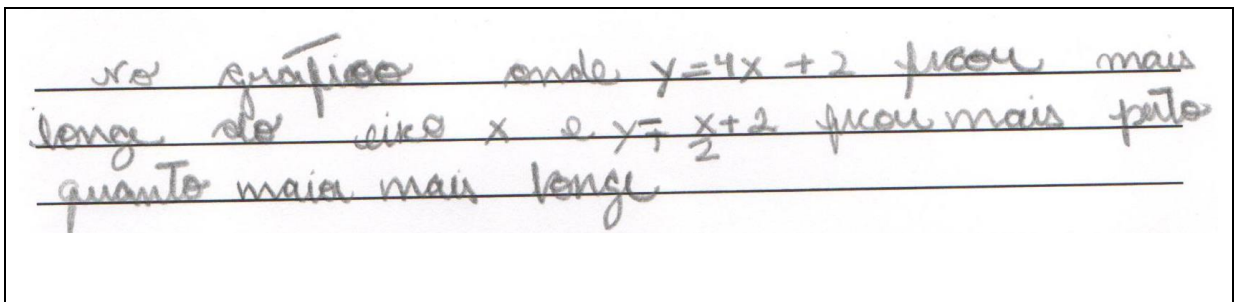 no gráfico onde y=4x+2 ficou mais
longe do eixo x e y=x/2+2 ficou mais perto
quanto maior mais longe